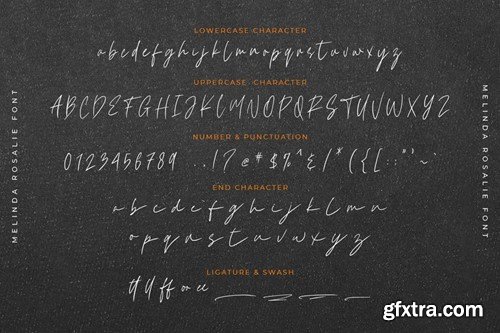 LOWERCASE CHARACTER
abcdefghijklmnopqrstuvwxyz
UPPERCASE CHARACTER
ABCDEFGHIJKLMNOPQRSTUVWXYZ
NUMBER & PUNCTUATION
0123456789 ..!? @#$%^&/*({[::"')~
END CHARACTER
abcdefghijklmn
opqrstuvwxyz
LIGATURE & SWASH
MELINDA ROSALIE FONT
MELINDA ROSALIE FONT
gfxtra.com